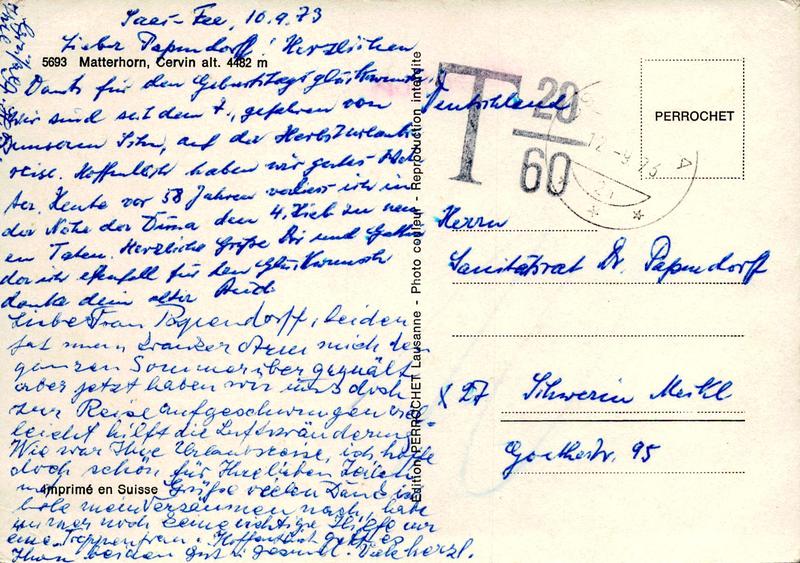 Saas-Fee, 10.9.73
Lieber Papendorff! Herzlichen
5693 Matterhorn, Cervin alt. 4482 m
Dank für den Geburtstagsglückwunsch.
Wir sind seit dem 7., gefahren von
unserem Sohn, auf der Herbsturlaubs
reise. Hoffentlich haben wir gutes Wet
ter. Heute vor 58 Jahren verlor ich in
der Nähe der Düna den 4.
en Taten. Herzliche Grüße Dir und Gattin
der ich ebenfalls für den Glückwunsch
danke dem alter
Liebe Frau Papendorff, leider
hat mein kranker Arm mich den
ganzen Sommer über gequält
aber jetzt haben wir uns doch
zur Reise aufgeschwungen viel-
leicht hilft die Luftveränderung
Wie war Ihre Urlaubsreise, ich hoffe
doch schön für Ihre lieben Zeilen
und Grüße vielen Dank
Imprimé en Suisse
hole mein Versäumen nach, habe
immer noch keine richtige Hilfe nur
eine Treppenfrau. Hoffentlich geht es
Ihnen beiden gut u. gesund. Viele herzl.
Edition PERROCHET Lausanne - Photo couleur - Reproduction interdite
T 20
60
12.-9.73
PERROCHET
Deutschland
Herrn
Sanitätsrat Dr. Papendorff
X 27 Schwerin Meckl
Goethestr. 95